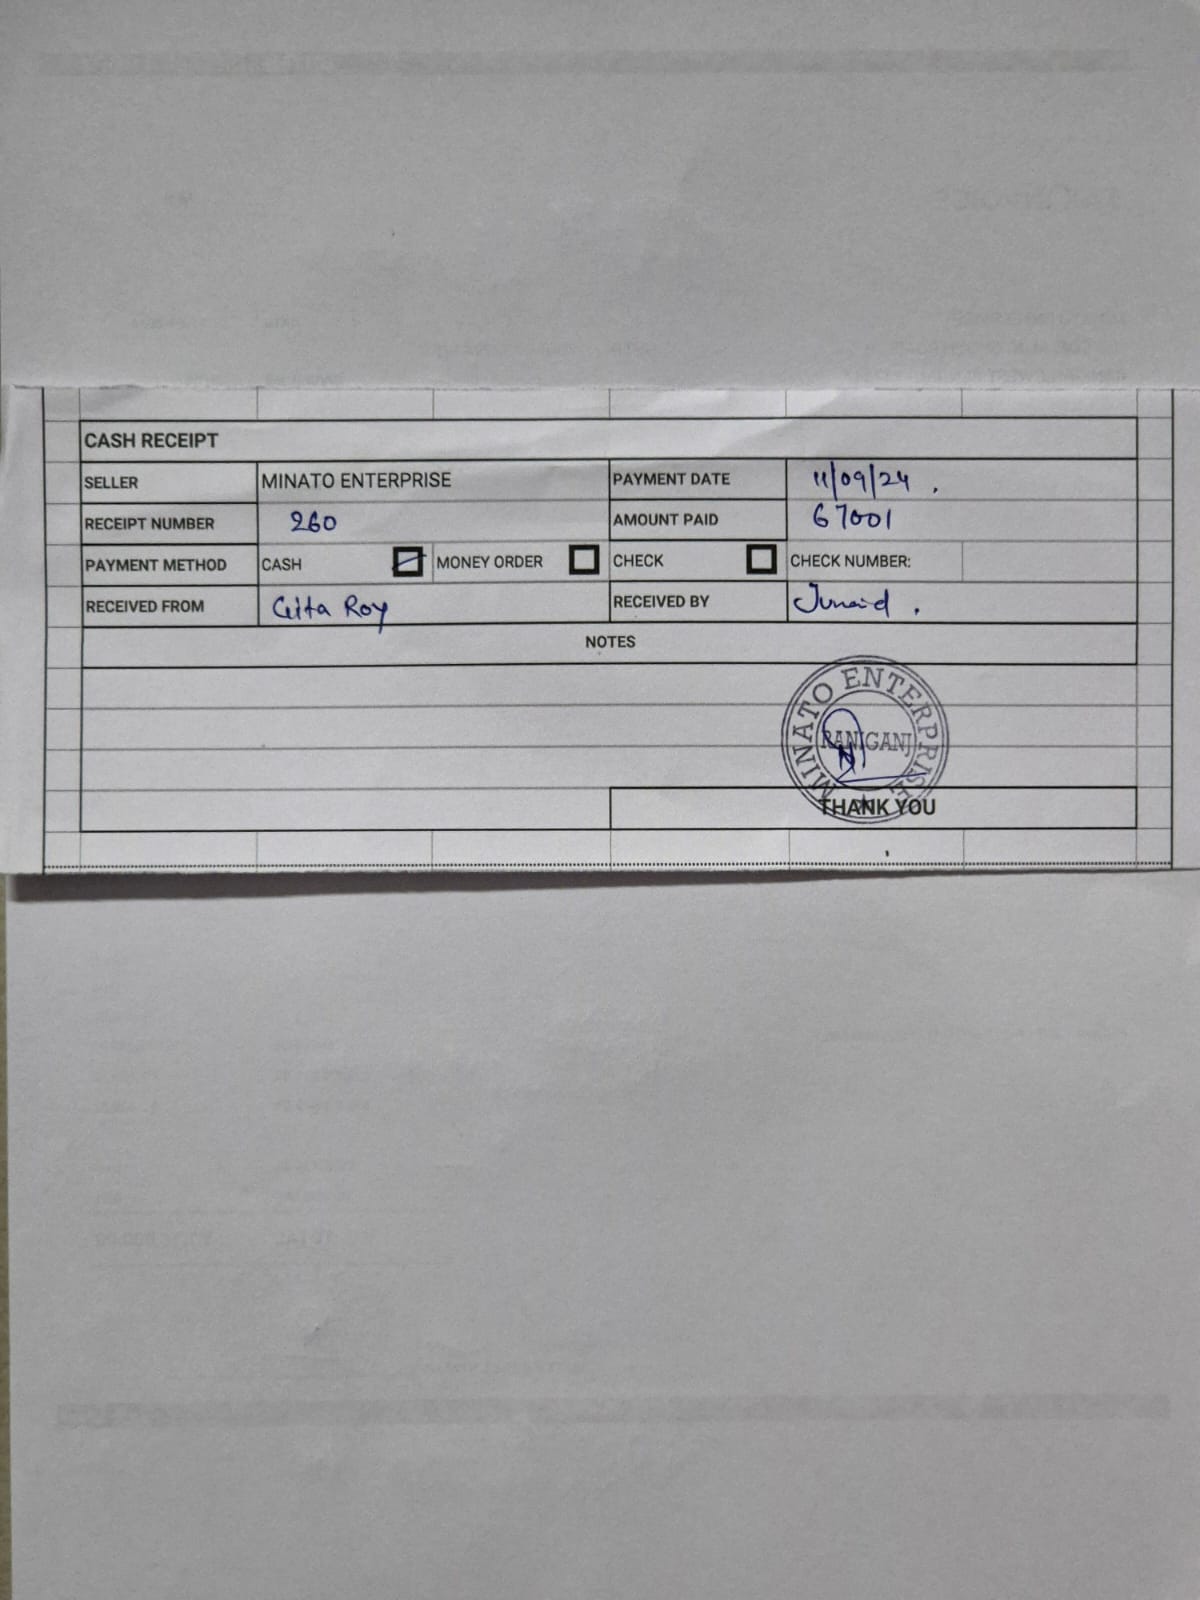 CASH RECEIPT
SELLER MINATO ENTERPRISE PAYMENT DATE 11/09/24 .
RECEIPT NUMBER 260 AMOUNT PAID 67001
PAYMENT METHOD CASH MONEY ORDER CHECK CHECK NUMBER:
RECEIVED FROM Gita Roy RECEIVED BY Junaid .
NOTES
MINATO ENTERPRISE
RANIGANJ
THANK YOU